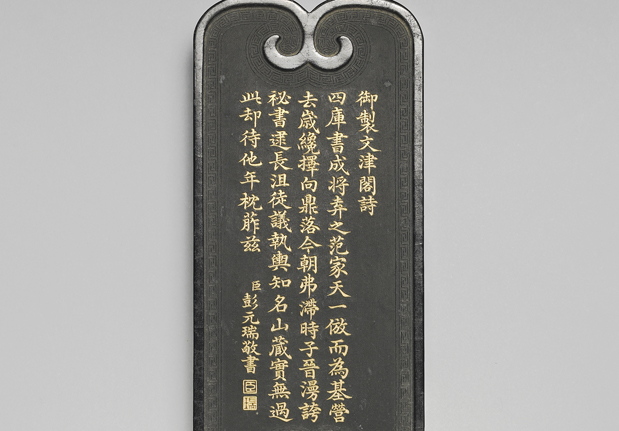 御製文津閣詩
四庫書成将弆之范家天一倣而為基營
去歳纔擇向鼎落今朝弗滯時子晉漫誇
秘書逮長沮徒議執輿知名山蔵實無過
此却待他年枕葄兹
臣彭元瑞敬書